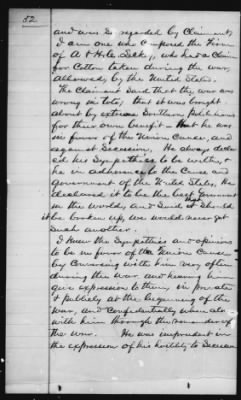 52
and was so regarded by Claimant,
I am one who composed the Firm
of A & Hite, who had a Claim
for Cotton taken during the war,
allowed, by the United States.
The Claimant Said that the war was
wrong in toto, that it was brought
about by extreme Southern Politicians
for their own benefit - that he was
in favor of the Union Cause, and
against Secession. He always declar
ed his Sympathies to be with, &
he in adherence to the Cause and
government of the United States, He
declared it to be the best Government
in the World, and Said that should
it be broken up, we would never get
such another.
I knew the Sympathies and opinions
to be in favor of the Union Cause
by Conversing with him very often
during the war and hearing him
give expression to them, in private
& Publicly at the beginning of the
war, and Confidentially when alo
with him through the remainder of
the war. He was imprudent in
the expression of his hostility to Secession